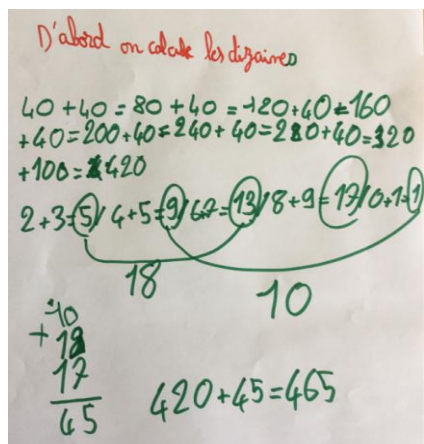 D'abord on calcule les dizaines
40 + 40 = 80 + 40 = 120 + 40 = 160
+ 40 = 200 + 40 = 240 + 40 = 280 + 40 = 320
+ 100 = 420
2 + 3 = 5 / 4 + 5 = 9 / 6+7 = 13 / 8 + 9 = 17 / 0 + 1 = 1
18
10
10
+ 18
17
45
420 + 45 = 465